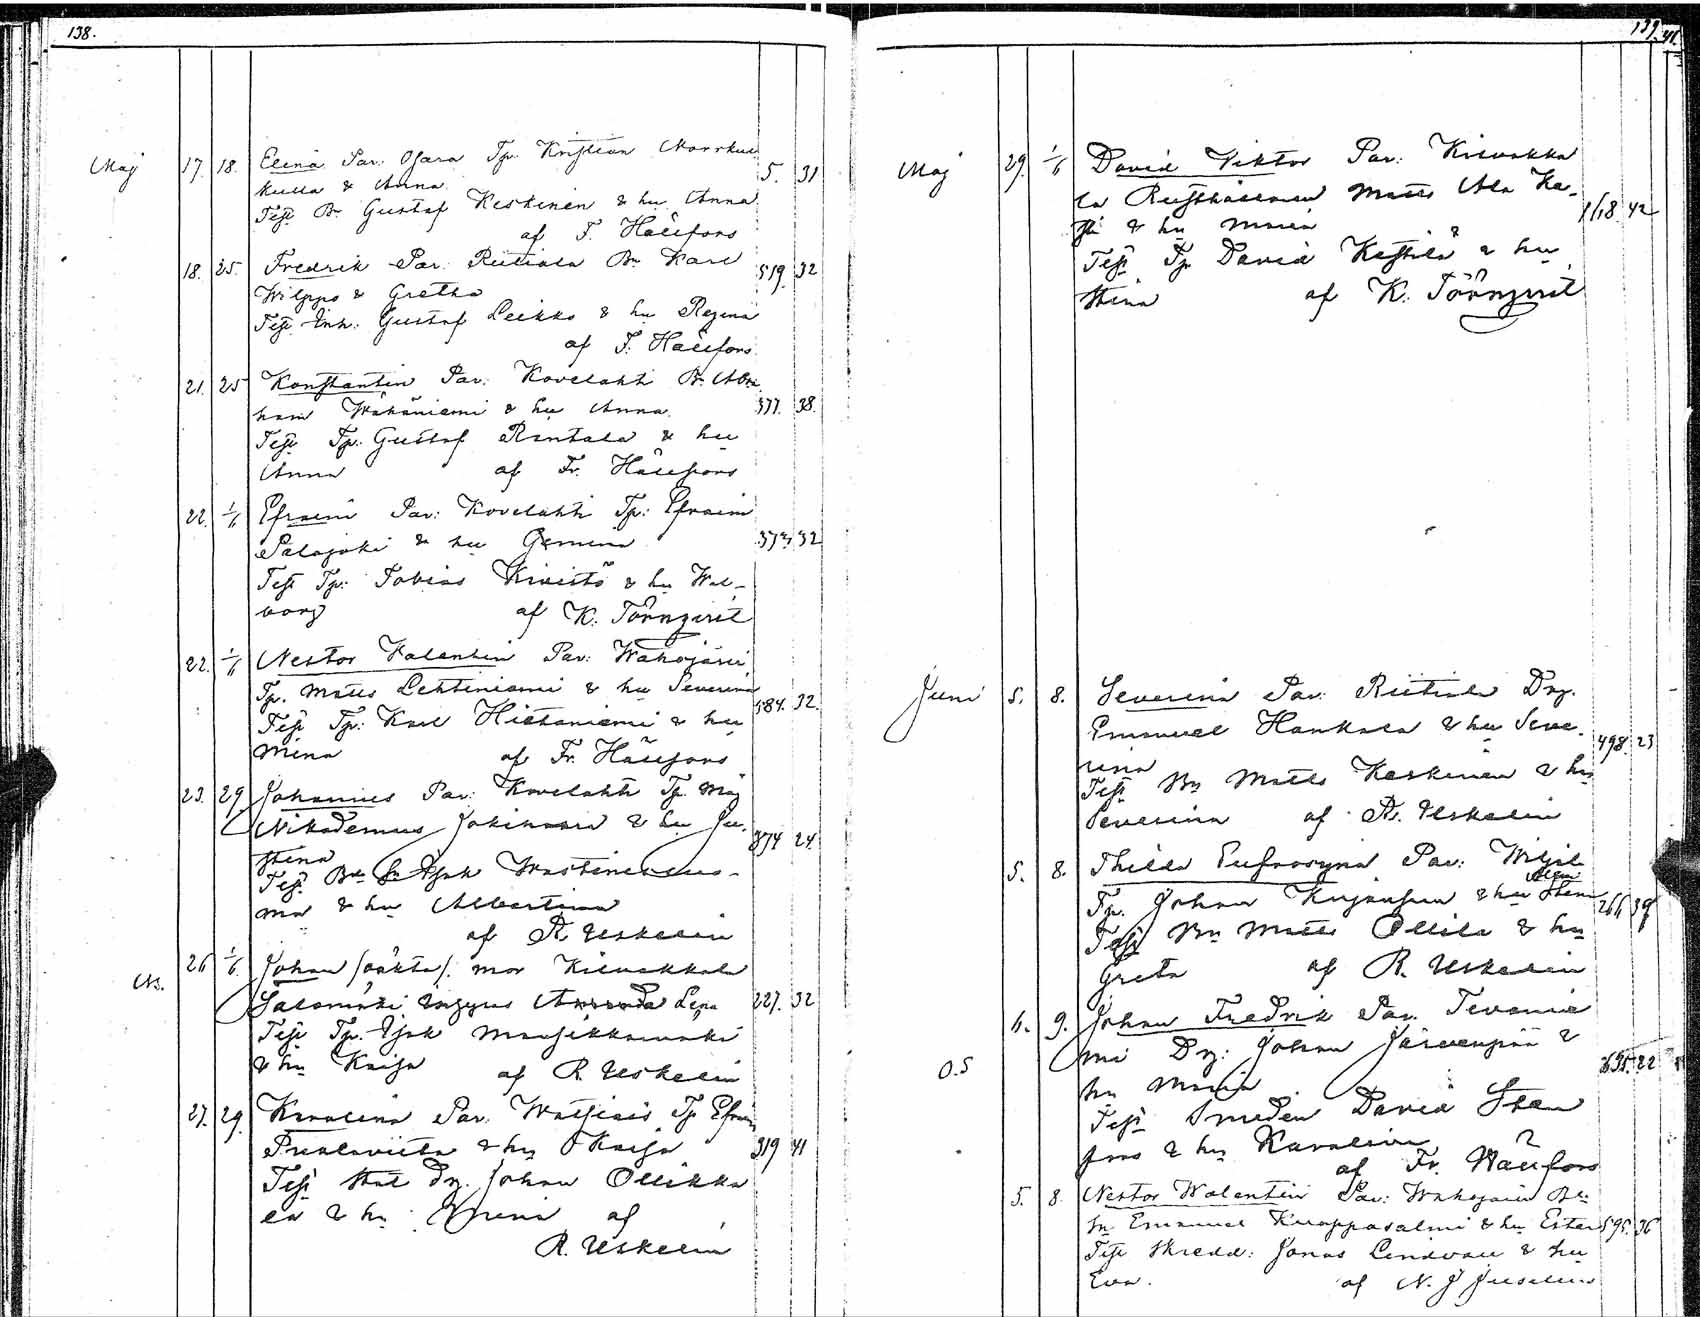 138.
Maj 17. 18. Elina Par. Osara Tp. Kristian Markku
kulla & Anna 5. 31
Test. Bn Gustaf Keskinen & hu Anna
af F. Hällfors
18. 25. Fredrik Par. Riitiala Bn Karl
Wilppo & Gretha 519. 32
Test. Inh: Gustaf Leikko & hu Regina
af F. Hällfors
21. 25 Konstantin Par: Kovelahti Bn Abra
ham Wähäniemi & hu Anna. 377. 38.
Test Tp: Gustaf Rantala & hu
Anna af Fr. Hällfors
22. 1/6 Efraim Par: Kovelahti Tp: Efraim
Salojoki & hu Gemina 373. 32
Test Tp: Tobias Kivistö & hu Wal-
borg af K. Törnqvist
22. 1/6 Nestor Valentin Par: Wahojärvi
Tp. Matts Lehtiniemi & hu Severina 584. 32.
Test Tp: Karl Hietaniemi & hu
Mina af Fr. Hällfors
23. 29 Johannes Par: Kovelahti Tp. Måg
Nikodemus Jokinen & hu Ju- 374 24.
stina
Test. Bn Isak
ma & hu Albertina
af R. Uskelin
Ns. 26 1/6. Johan /oäkta/. mor Kilvakkala
Salomäki Amanda Lena 227. 32
Test Tp. Isak Mansikkamäki
& hu Kaisa af R. Uskelin
27. 29. Karolina Par. Watsiais Tp Efraim
& hu Kaisa 319 41
Test Stat Dg. Johan Ollikka
la & hu Mina af
R. Uskelin
139.
Maj 29. 1/6 David Viktor Par: Kilvakka
la Rusthållaren Matts Ala Ke-
sti & hu Maria 1/18. 42
Test Tp David Kestilä & hu
Stina af K. Törnqvist
Juni 5. 8. Severina Par: Riitiala Dg.
Emanuel Hankala & hu Seve- 498. 23
rina
Test Bn Matts Keskinen & hu
Severina af R. Uskelin
5. 8. Thilda Eufrosyna Par:
Tp. Johan & hu 266 39
Test Bn Matts Ollila & hu
Greta af R. Uskelin
O.S 6. 9. Johan Fredrik Par. Tevanie
mi Dg: Johan Järvenpää & 695. 22
hu Maria
Test Smeden David Sten
fors & hu Karolina
af Fr. Hällfors
5. 8. Nestor Walentin Par: Wahojärvi Bn:
Sn. Emanuel Kuoppasalmi & hu Ester 595. 36
Test Skredd: Jonas Lindvall & hu
Eva. af N. J Juselius